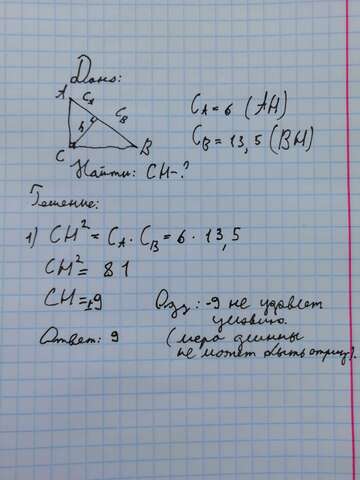 Дано:
A
C_A
C_B
h
C
B
C_A = 6 (AH)
C_B = 13,5 (BH)
Найти: CH-?
Решение:
1) CH² = C_A · C_B = 6 · 13,5
CH² = 81
CH = ±9
Одз: -9 не удовлет
условию.
Ответ: 9
(мера длинны
не может быть отриц).